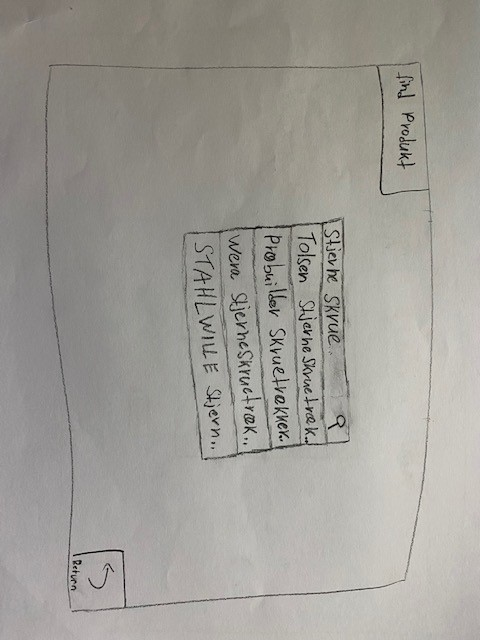 find Produkt
Stjerne skrue
Tolsen stjerneskruetræk..
Probuilder skruetrækker..
Wera stjerneskruetræk..
STAHLWILLE stjern..
Return